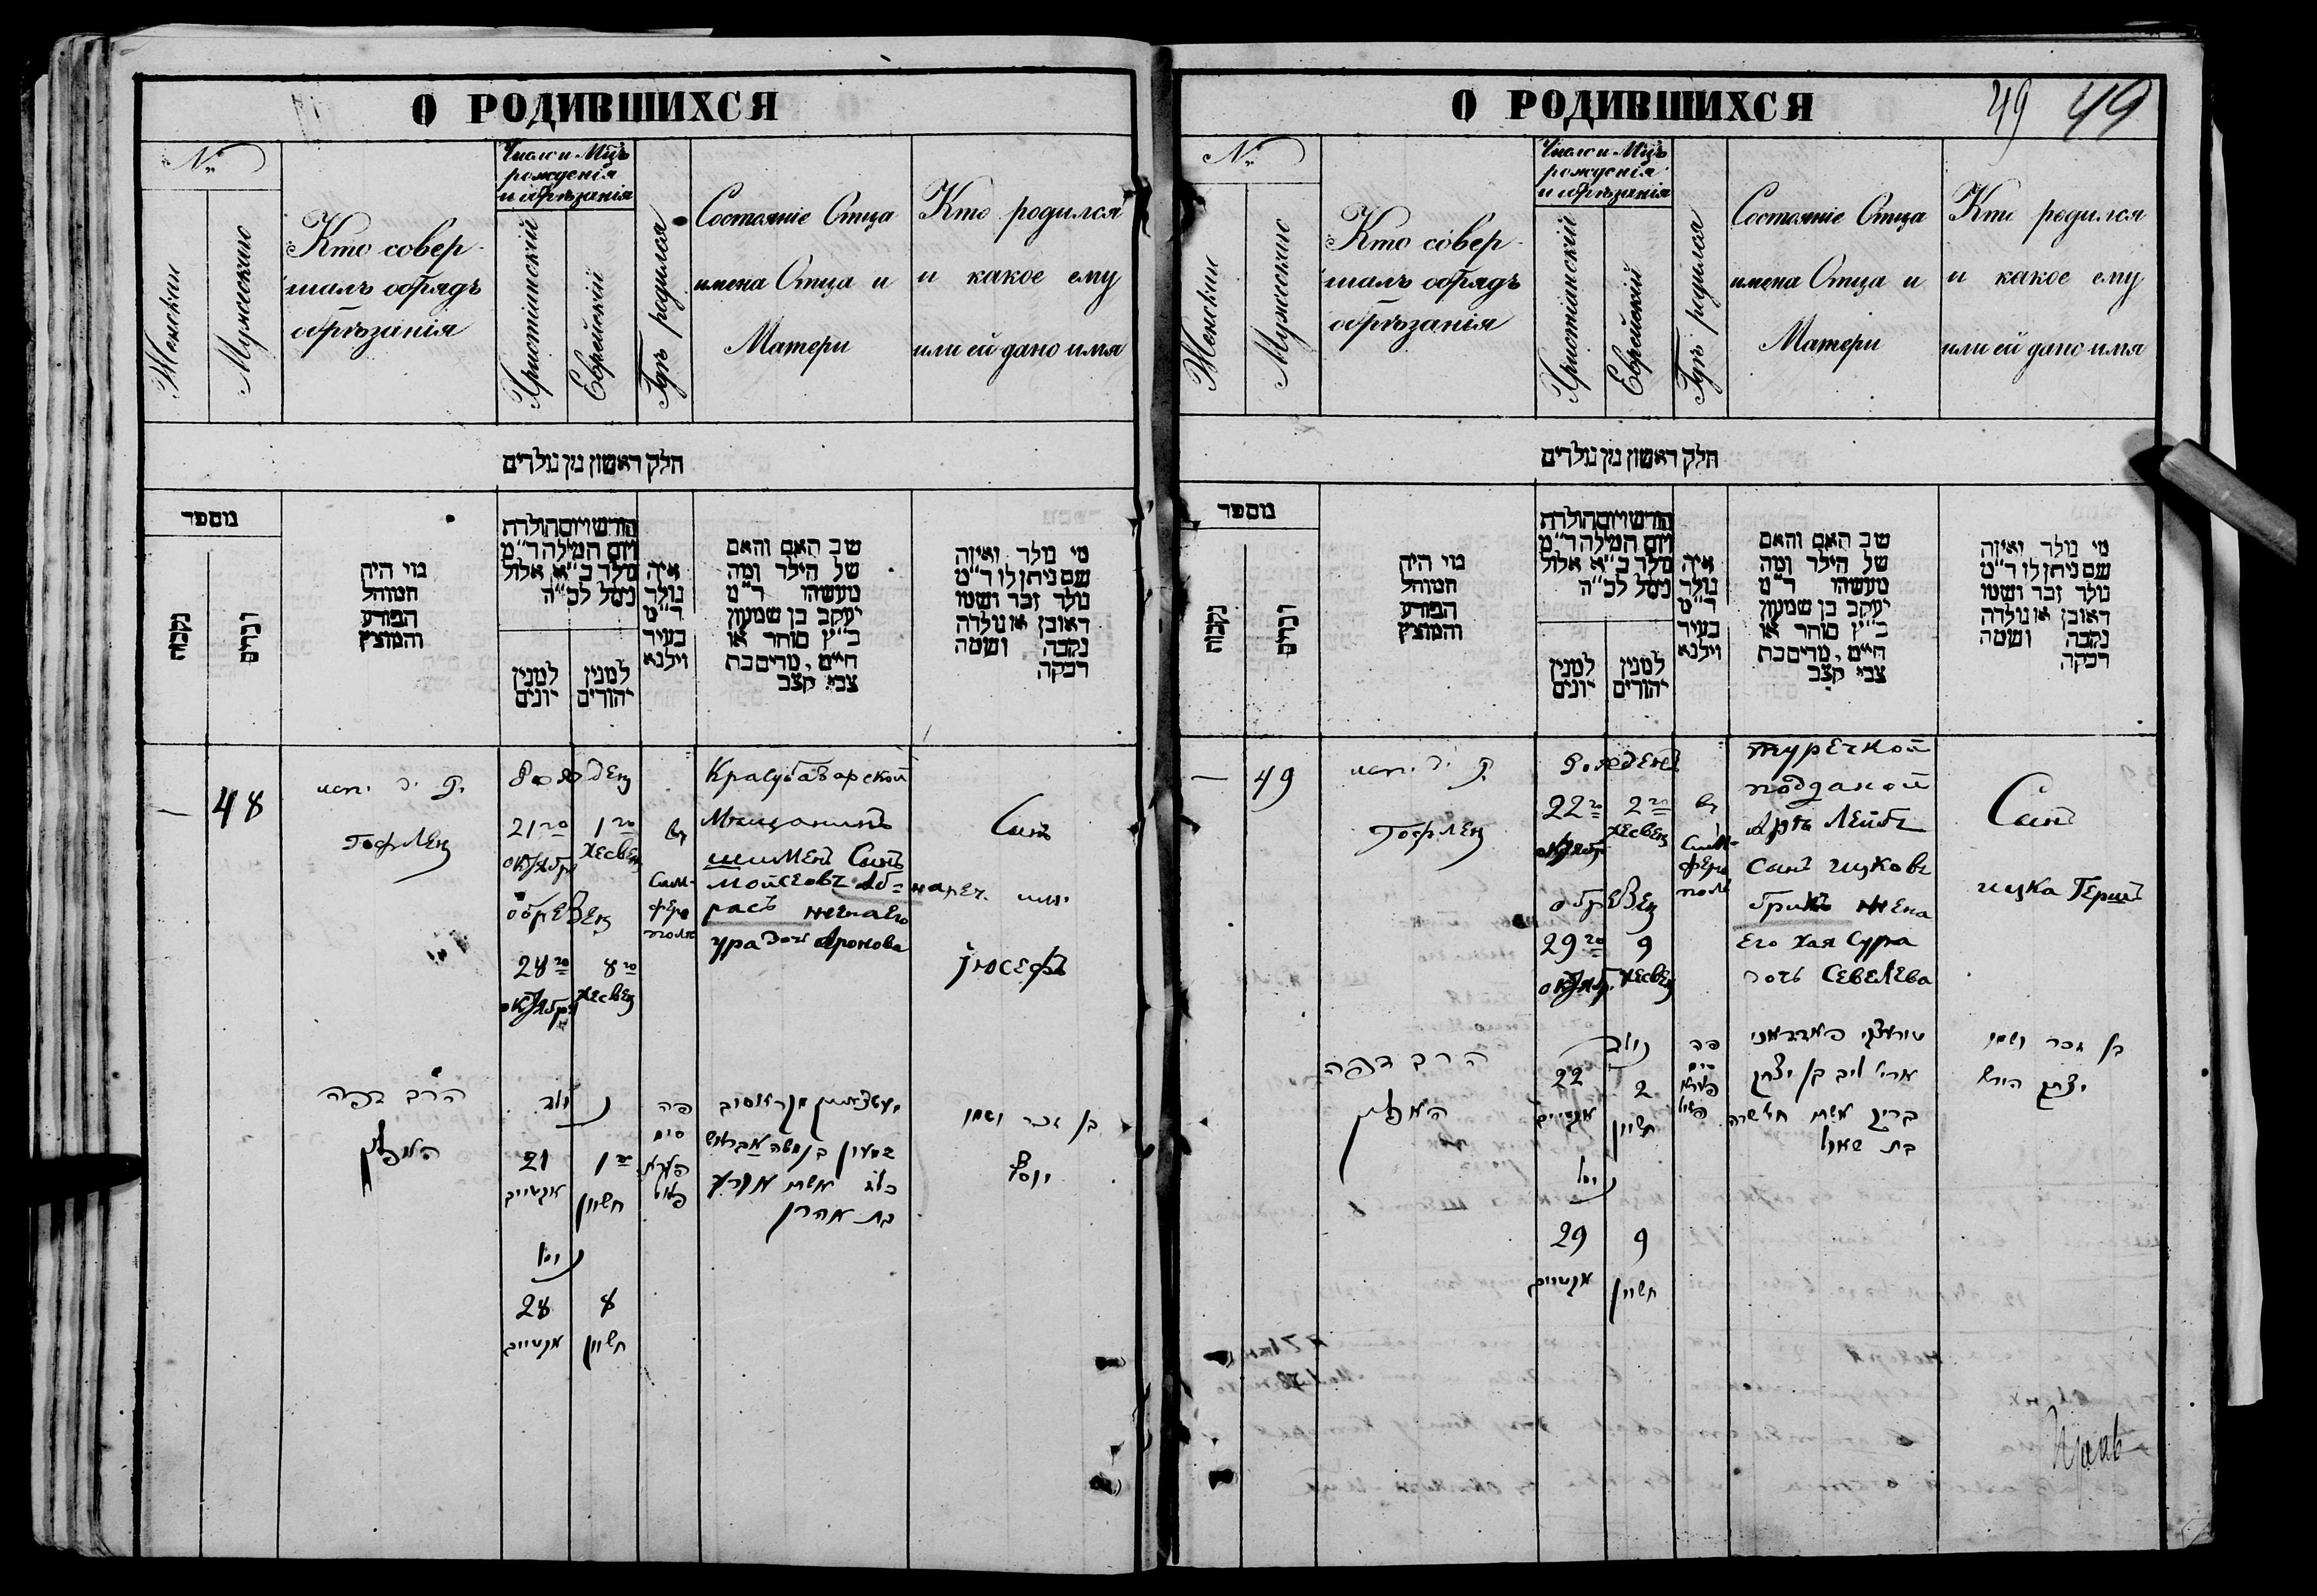 О РОДИВШИХСЯ
№
Женскаго
Мужескаго
Кто совер-
шалъ обрядъ
обрѣзанія
Число и Мцъ
рожденія
и обрѣзанія
Христіанскій
Еврейскій
Гдѣ родился
Состояніе Отца
имена Отца и
Матери
Кто родился
и какое ему
или ей дано имя
חלק ראשון מן נולדים
מספר
נקבות
זכרים
מוי היה
המוהל
הפורע
והמוצץ
חודש ויום הולדת
ויום המילה ד״מ
נולד כ״א אלול
נימל לכ״ה
למנין
יונים
למנין
יהודים
איה
נולד
ד״מ
בעיר
ווילנא
שם האם והאם
של הילד ומה
מעשהו ד״מ
יעקב בן שמעון
כ״ץ סוחר או
חייט, מרים בת
צבי קצב
מי נולד ואיזה
שם ניתן לו ד״מ
נולד זכר ושמו
ראובן או נולדה
נקבה ושמה
רבקה
— 48
Гофлец
21го 1го
октября хесвец
обрезец
28го 8го
октября хесвец
въ
Сим-
феро
поле
Мещанинъ
шименъ Сынъ
Мойсеовъ Аб=
расъ жена его
Аронова
Сынъ
нареч. имя
Іюсефъ
הרב דפה
נולד
21 1го
אקטייבר חשוון
נימל
28 8
אקטייבר חשוון
פה
סים
פערא
פאל
בת אהרן
בן זכר ושמו
יוסף
О РОДИВШИХСЯ
49 49
№
Женскаго
Мужескаго
Кто совер-
шалъ обрядъ
обрѣзанія
Число и Мцъ
рожденія
и обрѣзанія
Христіанскій
Еврейскій
Гдѣ родился
Состояніе Отца
имена Отца и
Матери
Кто родился
и какое ему
или ей дано имя
חלק ראשון מן נולדים
מספר
נקבות
זכרים
מוי היה
המוהל
הפורע
והמוצץ
חודש ויום הולדת
ויום המילה ד״מ
נולד כ״א אלול
נימל לכ״ה
למנין
יונים
למנין
יהודים
איה
נולד
ד״מ
בעיר
ווילנא
שם האם והאם
של הילד ומה
מעשהו ד״מ
יעקב בן שמעון
כ״ץ סוחר או
חייט, מרים בת
צבי קצב
מי נולד ואיזה
שם ניתן לו ד״מ
נולד זכר ושמו
ראובן או נולדה
נקבה ושמה
רבקה
— 49
Гофлец
22го 2го
октябр. хесвец
обрезец
29го 9
октябр. хесвец
въ
Сим-
феро
поле
турецкой
подданой
Арія Лейбъ
Сынъ ицковъ
жена
его хая Сура
дочь Севелева
Сынъ
ицка Гершъ
הרב דפה
נולד
22 2
אקטייבר חשוון
נימל
29 9
אקטייבר חשוון
פה
סים
פערא
פאל
ארי׳ ליב בן יצחק
בריק אשת חי׳ שרה
בת שאול
בן זכר ושמו
יצחק הירש